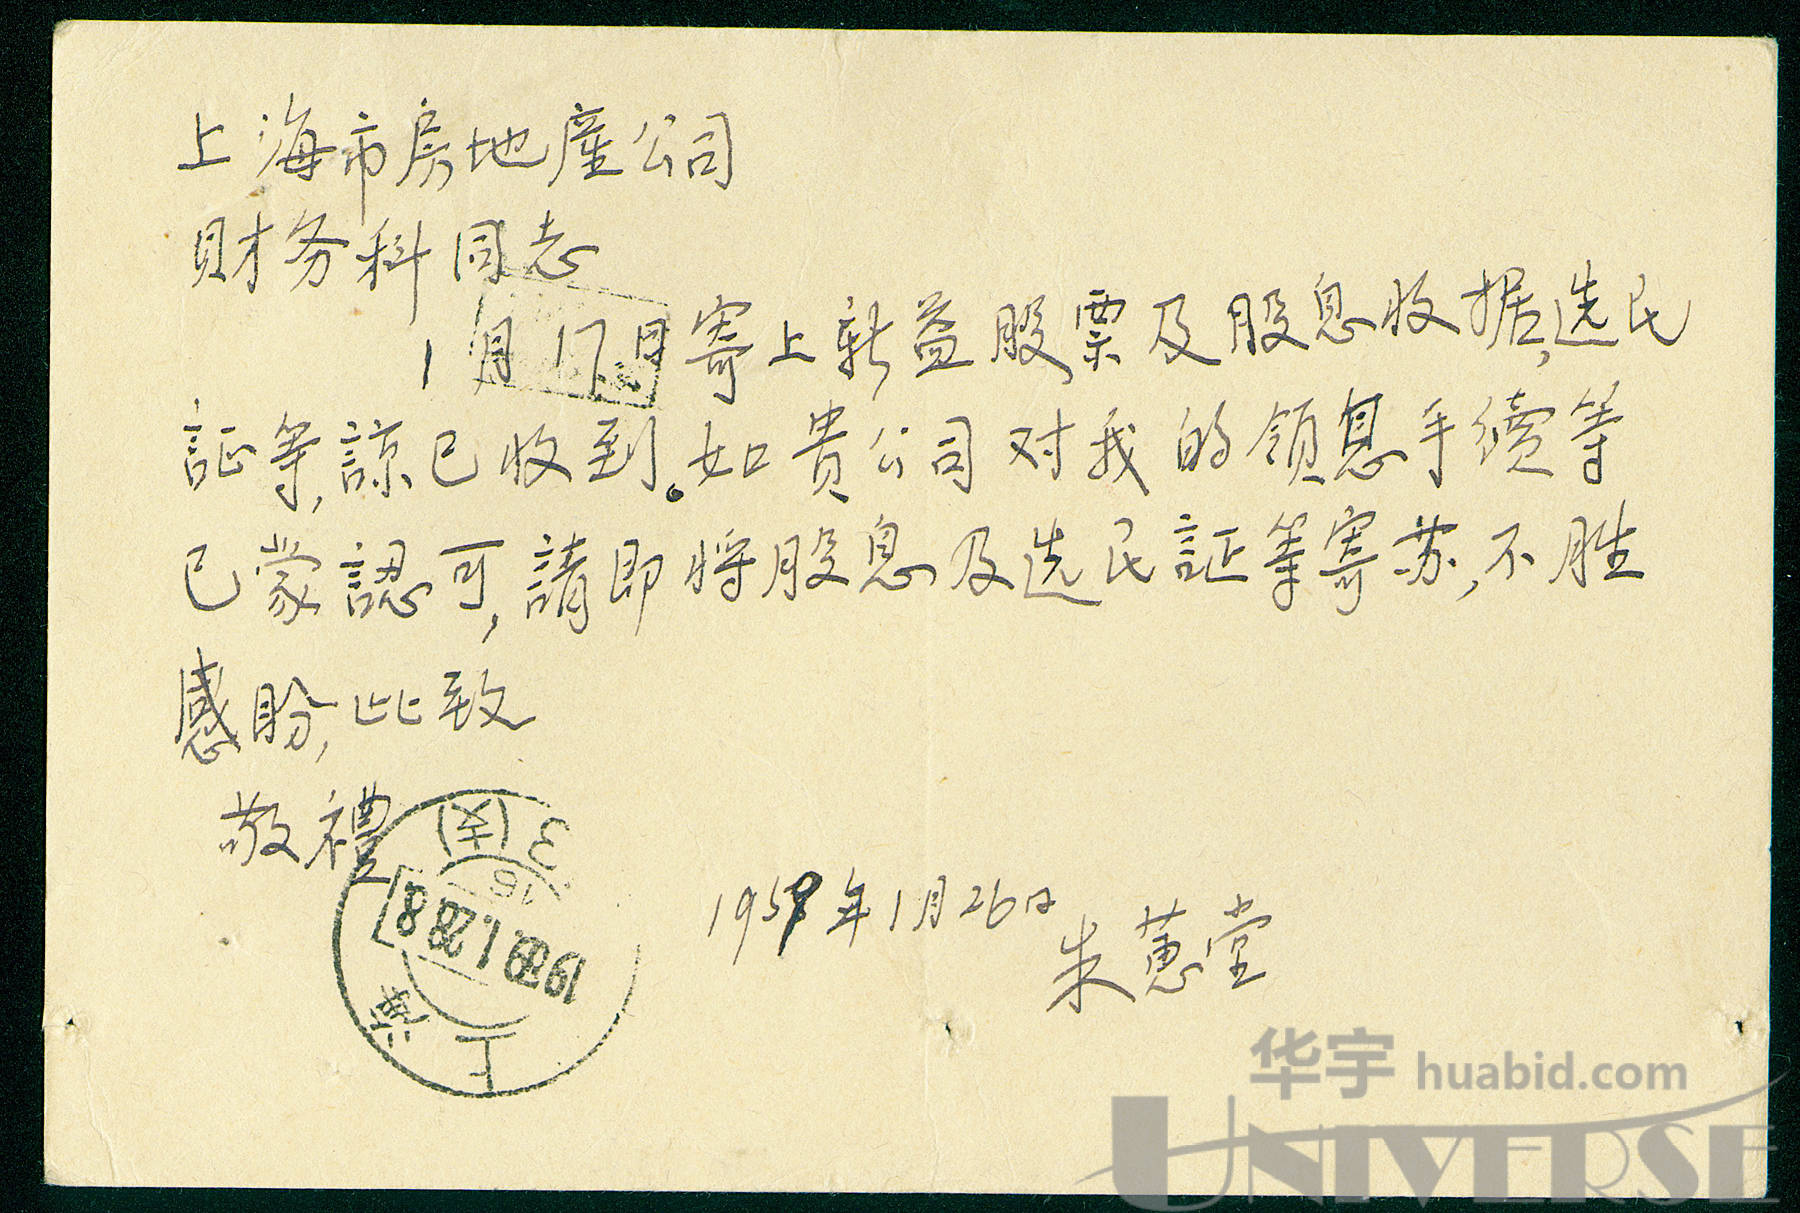 上海市房地產公司
財务科同志
1月17日寄上新益股票及股息收据,选民
証等,諒已收到。如貴公司对我的領息手續等
已蒙認可,請即将股息及选民証等寄苏,不胜
感盼,此致
敬禮
1959年1月26日
朱蕙堂
上海
3(支)
16
1959.1.28.8
华宇 huabid.com
UNIVERSE